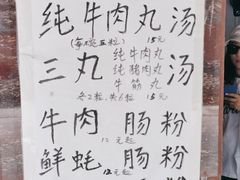 纯牛肉丸汤
(每碗五粒) 15元
三丸汤
纯牛肉丸
纯猪肉丸
牛筋丸
各2粒,共6粒 15元
牛肉肠粉
12元起
鲜蚝肠粉
12元起